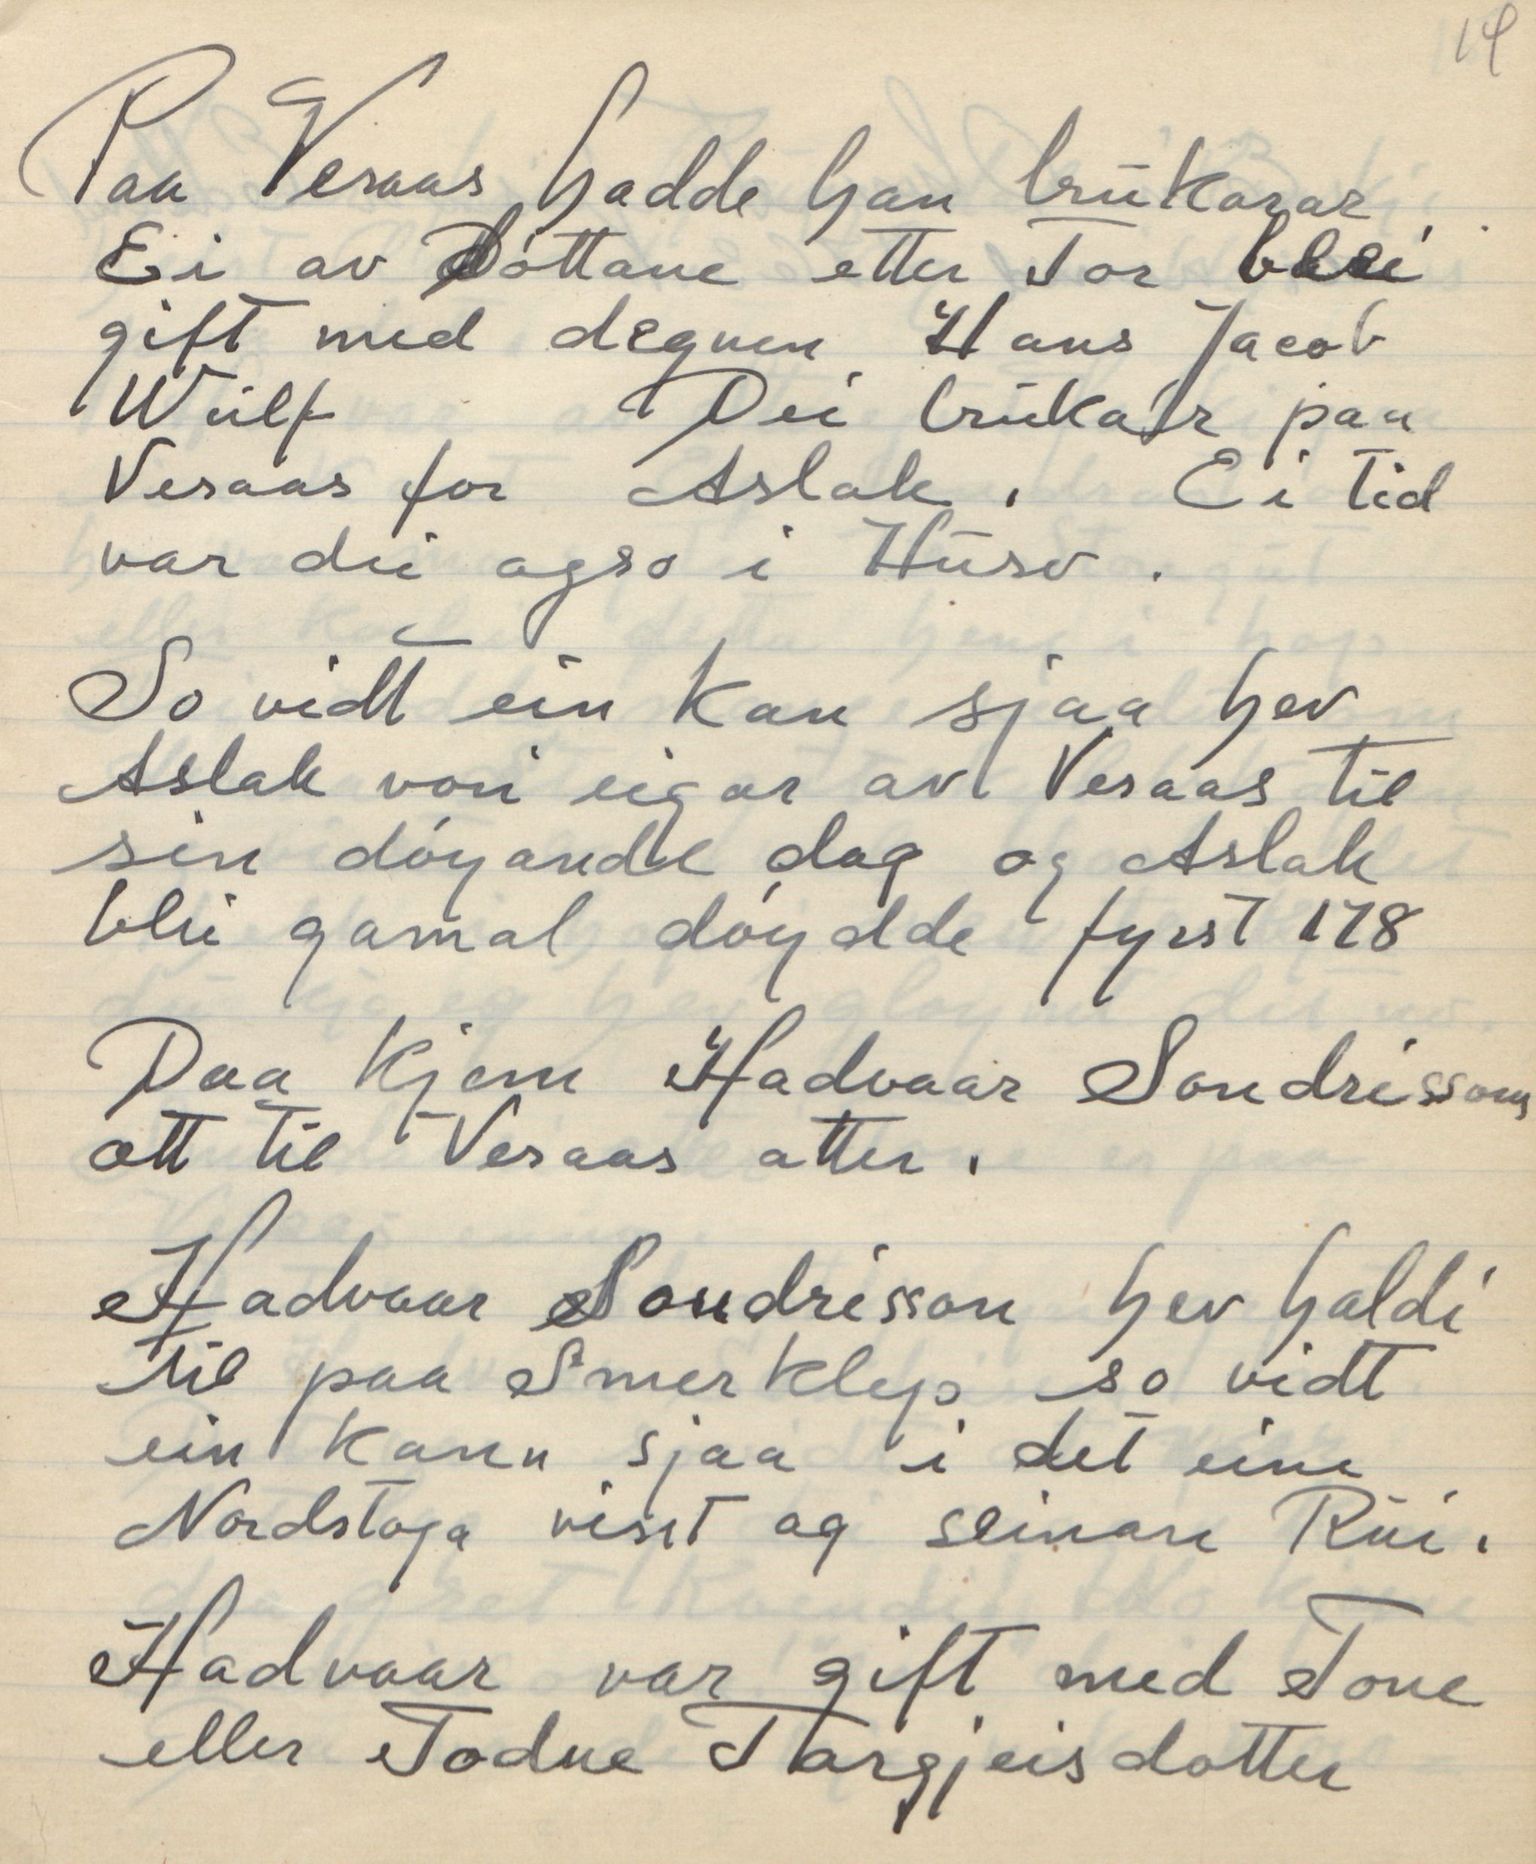 14
Paa Veraas hadde han brukarar.
Ei av Dottane etter Tor blei
gift med degnen Hans Jacob
Wulf Dei brukar paa
Veraas for Aslak. Ei tid
var dei ogso i Husv.
So vidt ein kan sjaa hev
Aslak vori eigar av Veraas til
sin døyande dag og Aslak
blei gamal døydde fyrst 178
Daa kjem Hadvaar Sondrissons
ott til Veraas atter.
Hadvaar Sondrisson hev haldi
til paa Smerklep so vidt
ein kann sjaa i det eine
Nordstoga visst og seinare Rui.
Hadvaar var gift med Tone
eller Todne Targjeisdotter